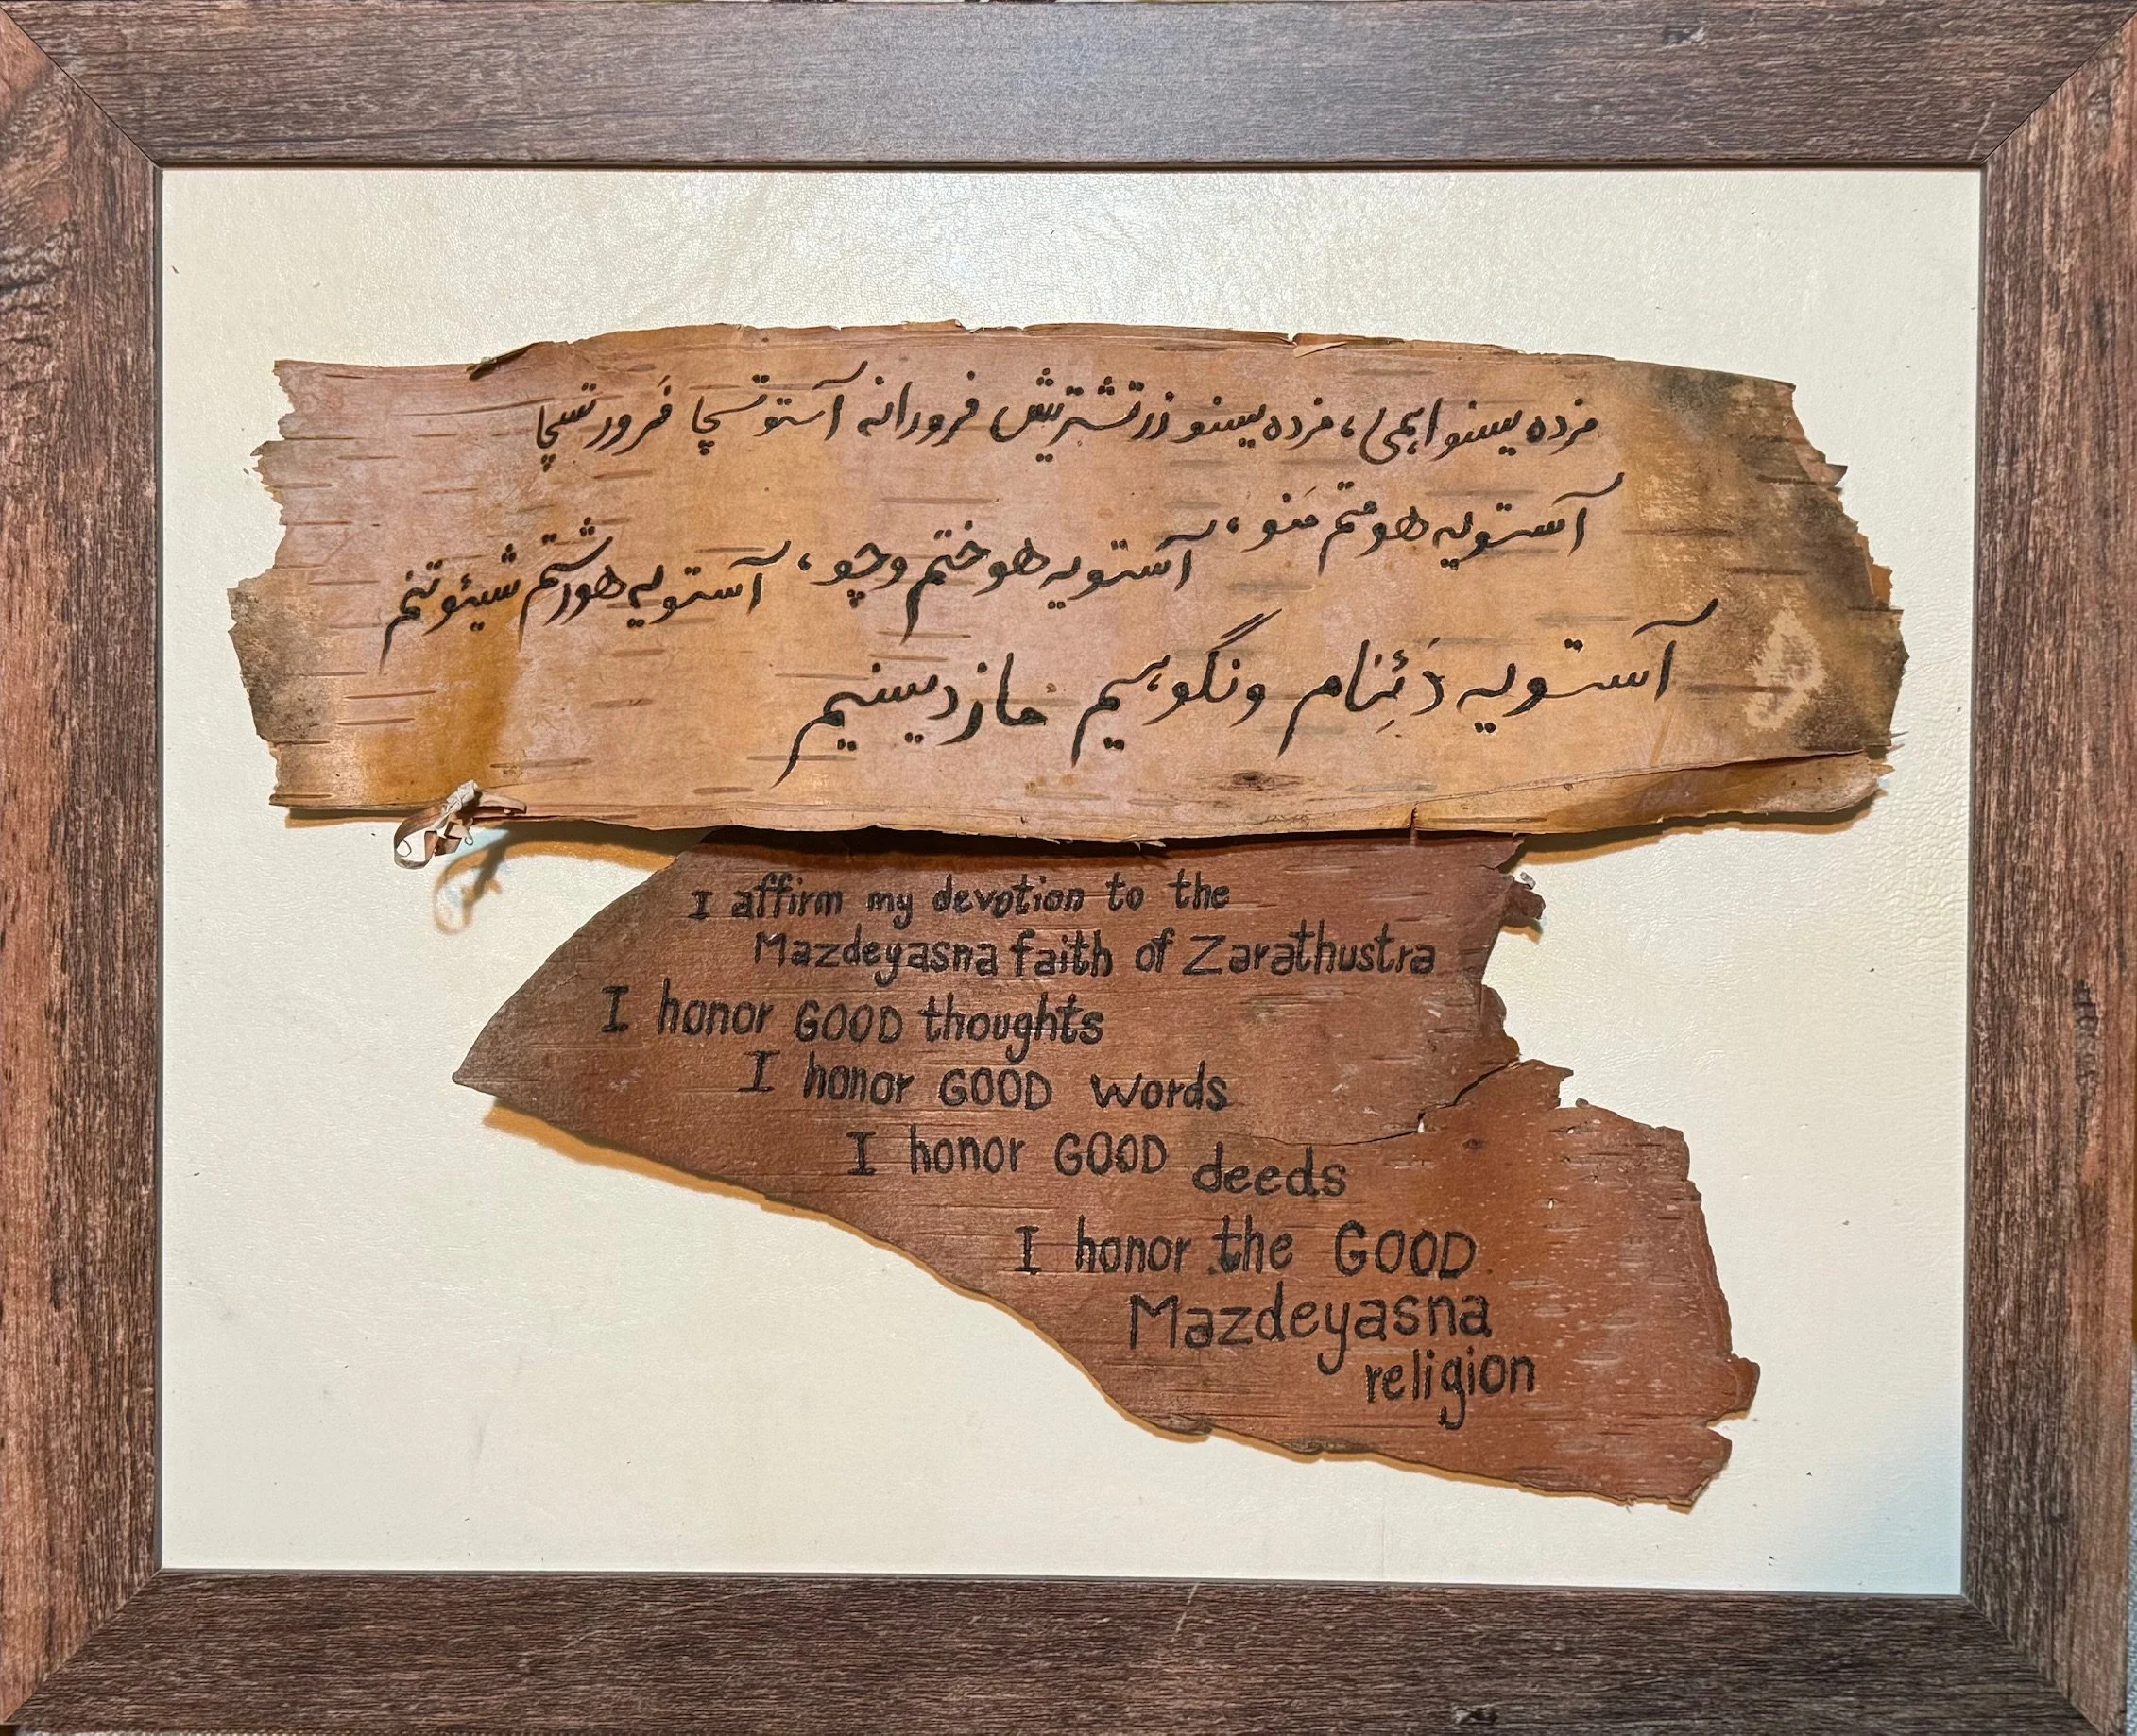 مزده یسنو اهمی، مزده یسنو زرتشتریش فرورانه آستوتسچا فَرورتسچا
آستویه هومتم مَنو، آستویه هوختم وچو، آستویه هورشتم شیئوتنم
آستویه دَئِنام ونگوهیم مازدیسنیم
I affirm my devotion to the
Mazdeyasna faith of Zarathustra
I honor GOOD thoughts
I honor GOOD words
I honor GOOD deeds
I honor the GOOD
Mazdeyasna
religion